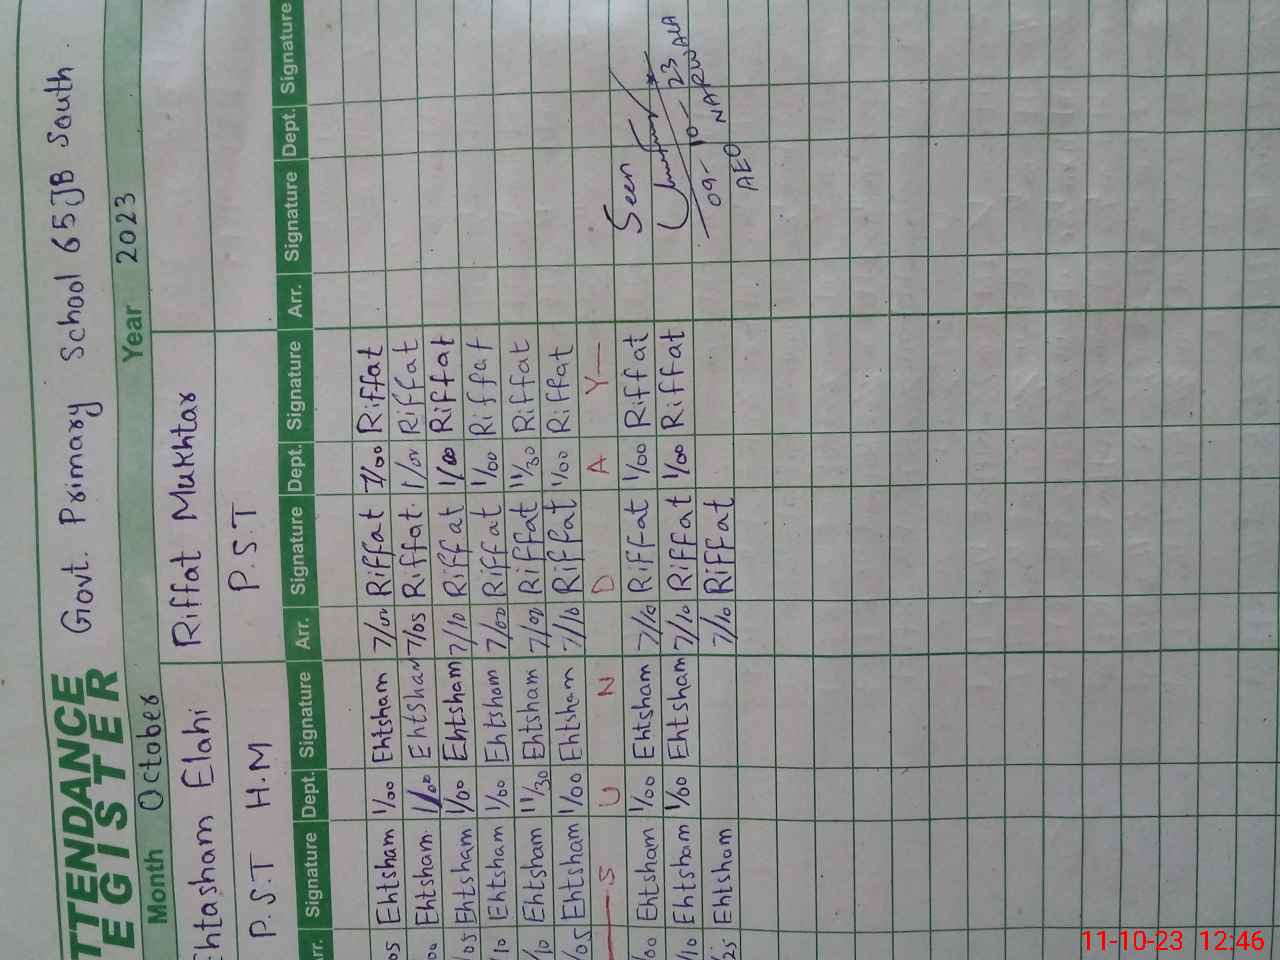 TTENDANCE Govt. Primary School 65JB South.
EGISTER
Month October Year 2023
htasham Elahi Riffat Mukhtar
P.S.T H.M P.S.T
rr. Signature Dept. Signature Arr. Signature Dept. Signature Arr. Signature Dept. Signature
05 Ehtsham 1/00 Ehtsham 7/00 Riffat 1/00 Riffat
00 Ehtsham. 1/00 Ehtsham 7/05 Riffat. 1/00 Riffat
05 Ehtsham 1/00 Ehtsham 7/10 Riffat 1/00 Riffat
/10 Ehtsham 1/00 Ehtsham 7/00 Riffat 1/00 Riffat
/10 Ehtsham 11/30 Ehtsham 7/00 Riffat 11/30 Riffat
/05 Ehtsham 1/00 Ehtsham 7/10 Riffat 1/00 Riffat
S U N D A Y
/00 Ehtsham 1/00 Ehtsham 7/10 Riffat 1/00 Riffat Seen
/10 Ehtsham 1/00 Ehtsham 7/10 Riffat 1/00 Riffat
/25 Ehtsham 7/10 Riffat 09-10-23
AEO NARWALA
11-10-23 12:46